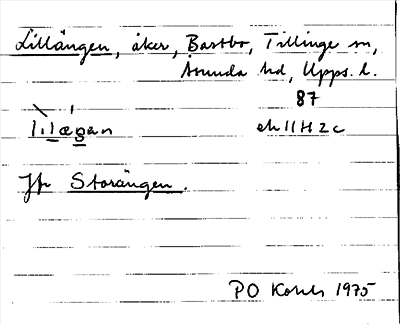 Lillängen, åker, Bastbo, Tillinge sn,
Åsunda hd, Upps. l.
87
lılægan
ek 11 H 2 c
Jfr Storängen.
PO 1975